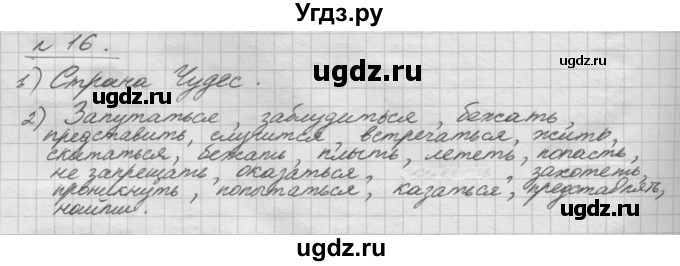 Угдз.ру
№ 16.
1) Страна Чудес.
2) Запутаться, заблудиться, бежать,
представить, случится, встречаться, жить,
скитаться, бежать, плыть, лететь, попасть,
не запрещать, оказаться, , захотеть,
проникнуть, попытаться, казаться, представлять,
найти.
ugdz.ru
ugdz.ru
ugdz.ru
ugdz.ru
ugdz.ru
ugdz.ru
ugdz.ru